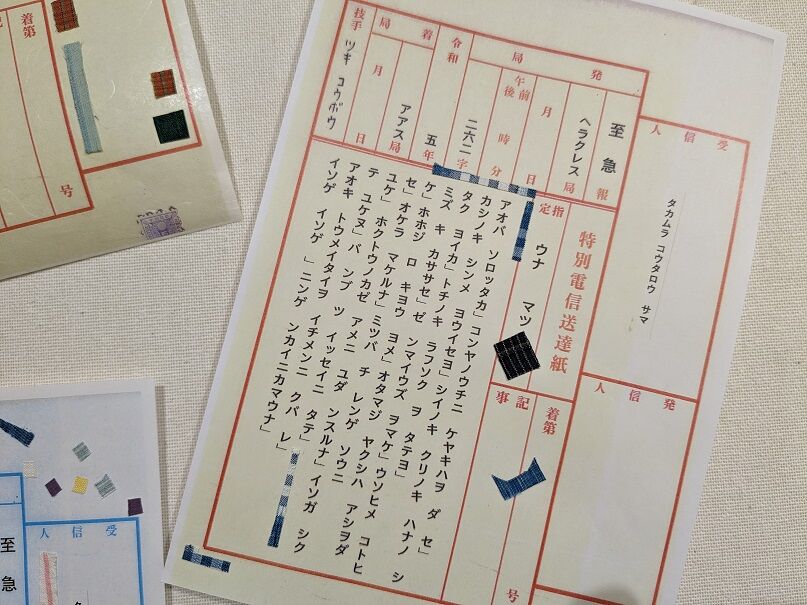 受信人
タカムラ コウタロウ サマ
発信人
特別電信送達紙
指定
ウナ マツ
着第
号
記事
発局
至急報
ヘラクレス局
月 日
午前後 時 分
二六二字
令和
五年
着局
アアス局
月 日
技手
ツキ コウボウ
アオバ ソロッタカ」コンヤノウチニ ケヤキハヲ ダ セ」
カシノキ シンメ ヨウイセヨ」シイノキ クリノキ ハナノ シ
タク ヨイカ」トチノキ ラフソク ヲ タテヨ」
ミズ キ カササセ」ゼ ンマイウズ ヲマケ」ウソヒメ コトヒ
ケ」ホホジ ロ キョウ ヨメ」オタマジ ヤクシハ アシヲダ
セ」オケラ マケルナ」ミツバ チ レンゲ ソウニ
ユケ」ホクトウノカゼ アメニ ユダ ンスルナ」イソガ シク
テ ユケヌ」バ ンブ ツ イッセイニ タテ」
アオキ トウメイタイヲ イチメンニ クバ レ」
イソゲ イソゲ 」ニンゲ ンカイニカマウナ」
着第
号
受信人
至急